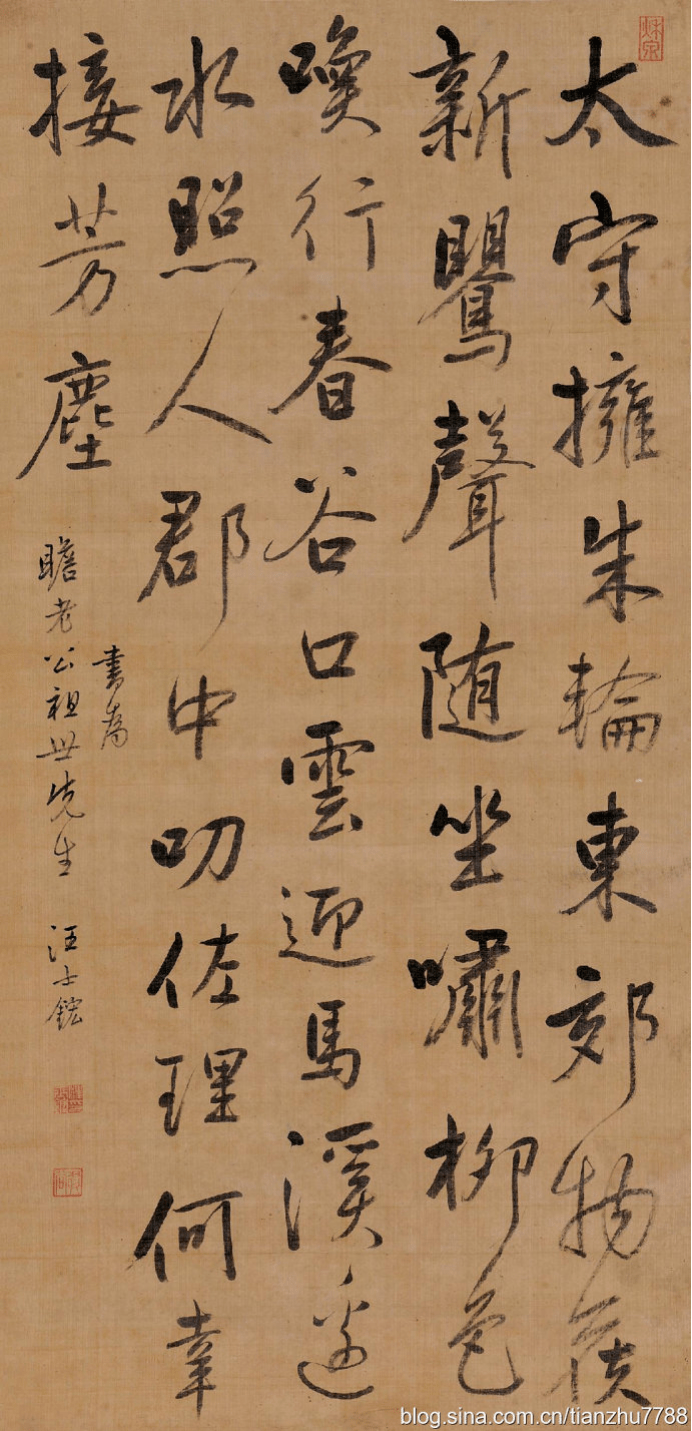 太守擁朱輪東郊物候
新鸎聲隨坐嘯柳色
喚行春谷口雲迎馬溪邊
水照人郡中叨佐理何幸
接芳塵
書為
瞻老公祖世先生 汪士鋐
blog.sina.com.cn/tianzhu7788